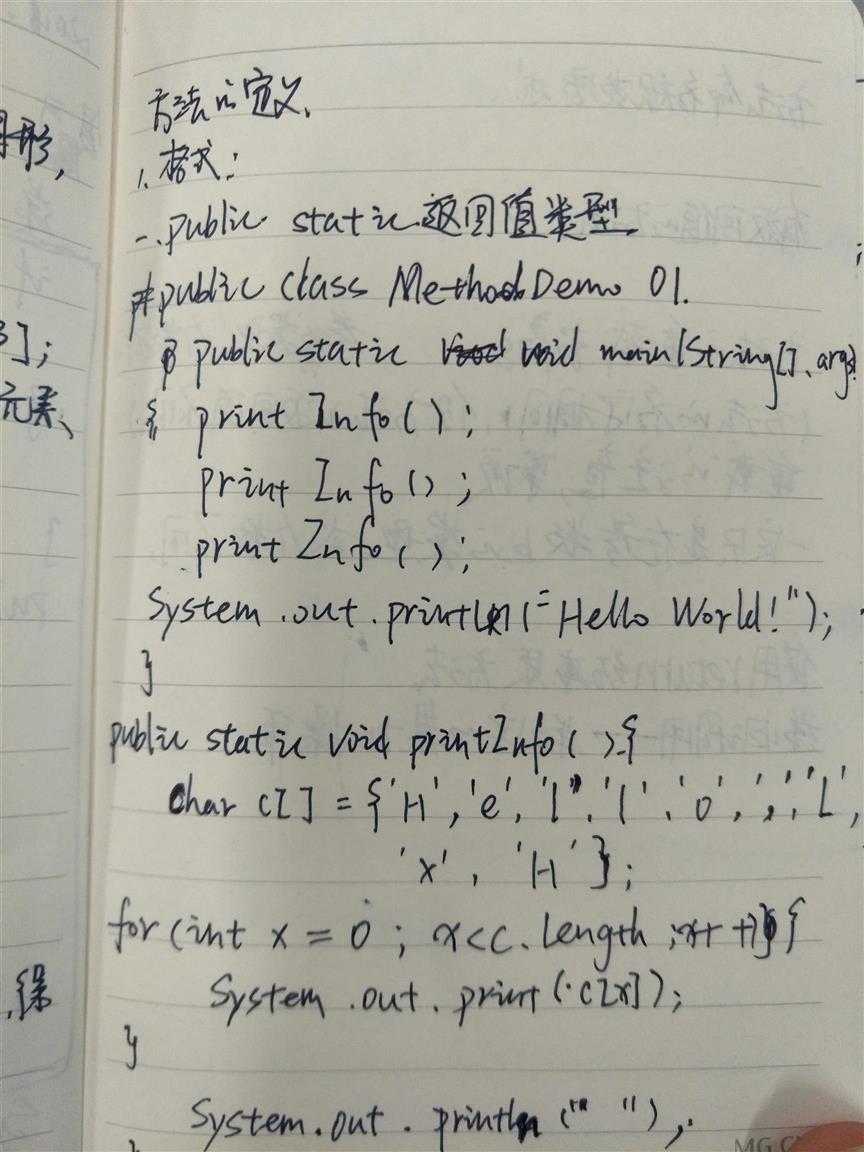 方法的定义、
1、格式:
一.public static 返回值类型
public class MethodDemo 01.
public static void main(String[]、args)
{ print Info();
print Info();
print Info();
System.out.println("Hello World!");
}
public static void printInfo(){
char c[] = {'H','e','l','l','o',',','L',
'x','H'};
for(int x = 0; x<c.length;x++){
System.out.print(c[x]);
}
System.out.println(" ");
形,
];
元素、
MG